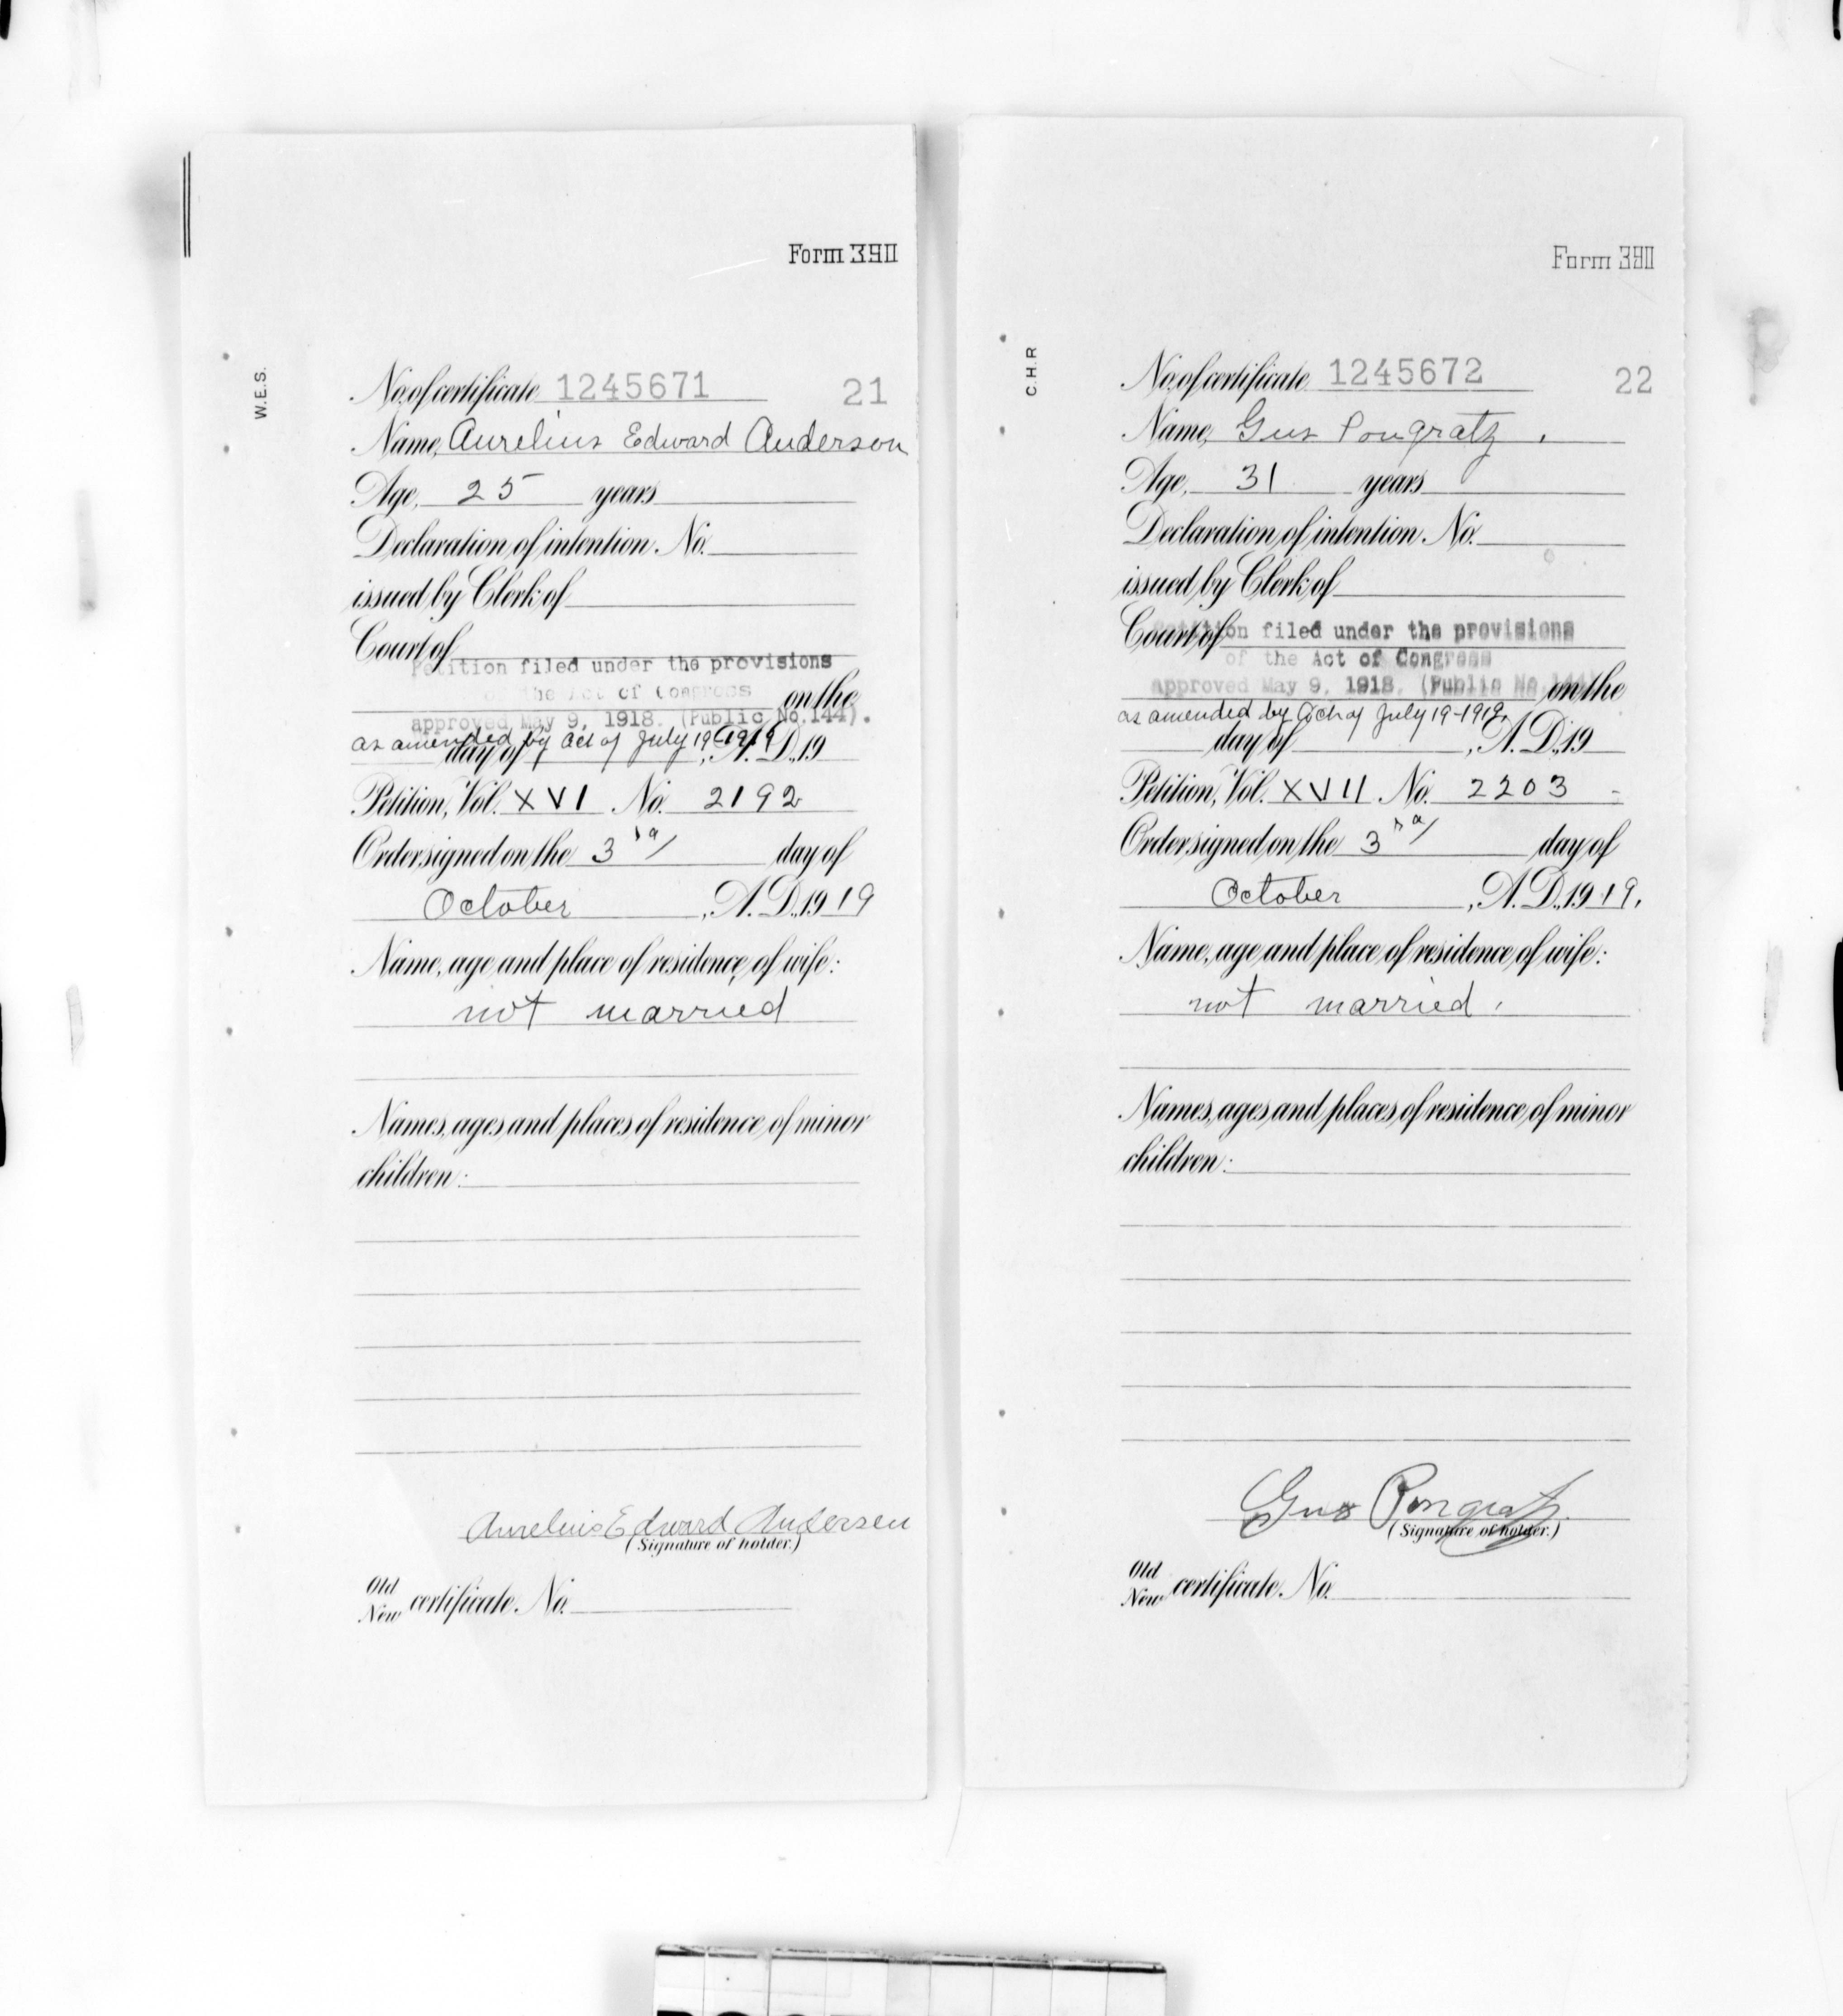 Form 390
W.E.S.
No. of certificate 1245671 21
Name, Aurelius Edward Anderson
Age, 25 years
Declaration of intention No.
issued by Clerk of
Court of
Petition filed under the provisions
of the Act of Congress on the
approved May 9, 1918. (Public No. 144).
as amended by act of July 19 1919
day of , A. D., 19
Petition, Vol. XVI No. 2192
Order signed on the 3rd day of
October , A. D., 1919
Name, age and place of residence of wife:
not married
Names, ages and places of residence of minor
children:
Aurelius Edward Andersen
(Signature of holder.)
Old
New certificate No.
Form 390
C.H.R
No. of certificate 1245672 22
Name, Gus Pongratz.
Age, 31 years
Declaration of intention No.
issued by Clerk of
Court of
Petition filed under the provisions
of the Act of Congress
approved May 9, 1918. (Public No. 144) on the
as amended by Act of July 19-1919.
day of , A. D., 19
Petition, Vol. XVII No. 2203 -
Order signed on the 3rd day of
October , A. D., 1919.
Name, age and place of residence of wife:
not married.
Names, ages and places of residence of minor
children:
Gus Pongratz.
(Signature of holder.)
Old
New certificate No.